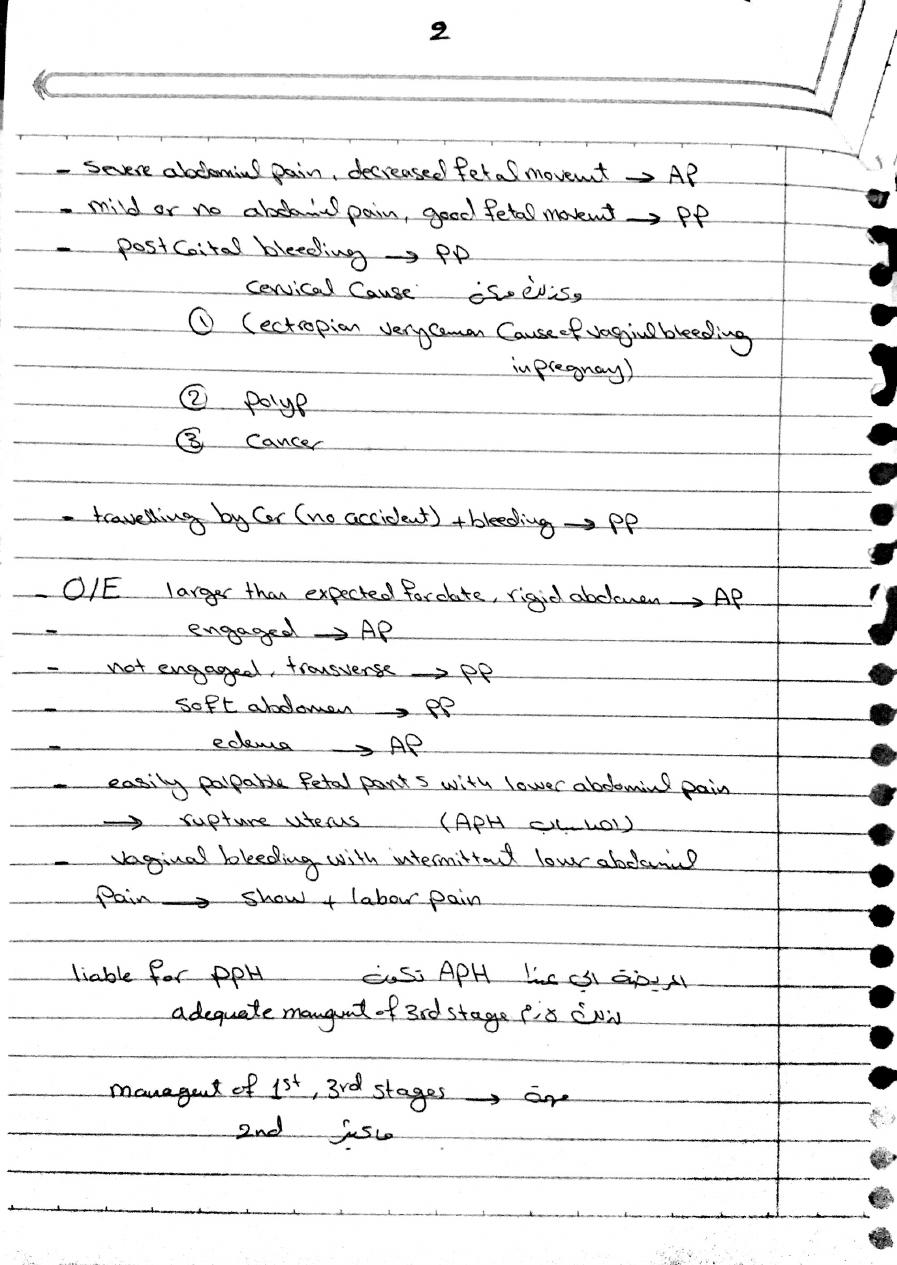 2
- Severe abdominal pain, decreased fetal movement → AP
- mild or no abdominal pain, good fetal movement → PP
- post coital bleeding → PP
cervical cause وكذلك ممكن
① (ectropian very common cause of vaginal bleeding
in pregnancy)
② polyp
③ cancer
- travelling by car (no accident) + bleeding → PP
- O/E larger than expected for date, rigid abdomen → AP
- engaged → AP
- not engaged, transverse → PP
- soft abdomen → PP
- edema → AP
- easily palpable fetal parts with lower abdominal pain
→ rupture uterus (APH)
- vaginal bleeding with intermittant lower abdominal
Pain → show + labour pain
المريضة الي عندا APH تكون liable for PPH
لذلك لازم adequate mangment of 3rd stage
managent of 1st, 3rd stages → مهمة
2nd